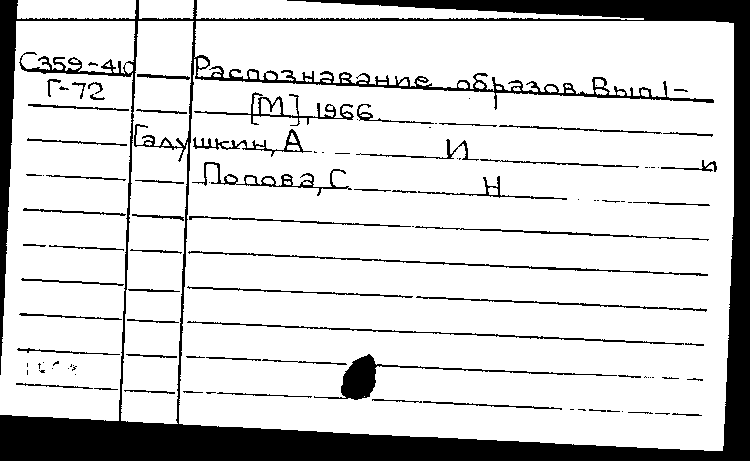 С359-410 Распознавание образов. Вып. 1-
Г-72 [М], 1966
Галушкин, А И и
Попова, С Н